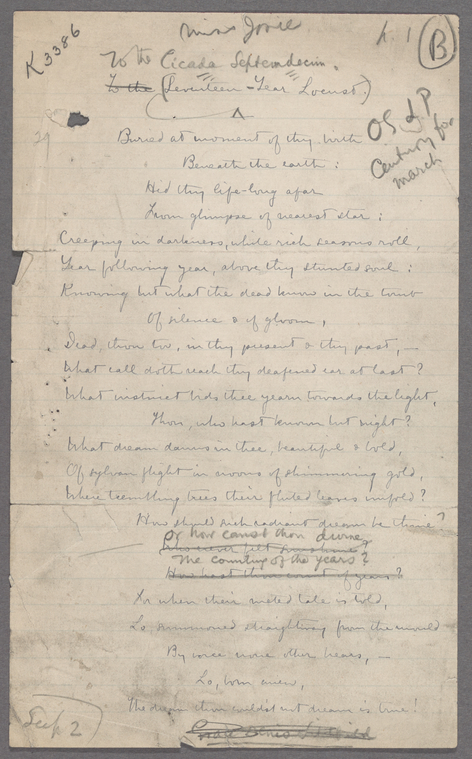 Miss Josie
K 3386
K. 1
B
To the Cicada Septemdecim.
To the (Seventeen-Year Locust.)
OS & P
Century for
March
29
Buried at moment of thy birth
Beneath the earth;
Hid thy life-long afar
From glimpse of nearest star;
Creeping in darkness, while rich seasons roll,
Year following year, above thy stunted soul;
Knowing but what the dead know in the tomb
Of silence & of gloom,
Dead, thou too, in thy present & thy past, —
What call doth reach thy deafened ear at last?
What instinct bids thee yearn towards the light,
Thou, who hast known but night?
What dream dawns in thee, beautiful & bold,
Of sylvan flight in noons of shimmering gold,
Where trembling trees their fluted leaves unfold?
How should such radiant dream be thine?
Or how canst thou divine
Who never felt sunshine?
The counting of the years?
How hast thou count of years?
For when their meted tale is told,
Lo summoned straightway from the mould
By voice none other hears, —
Lo, born anew,
The dream thou wouldst not dream is true!
Grace Denio Litchfield
Sept 2